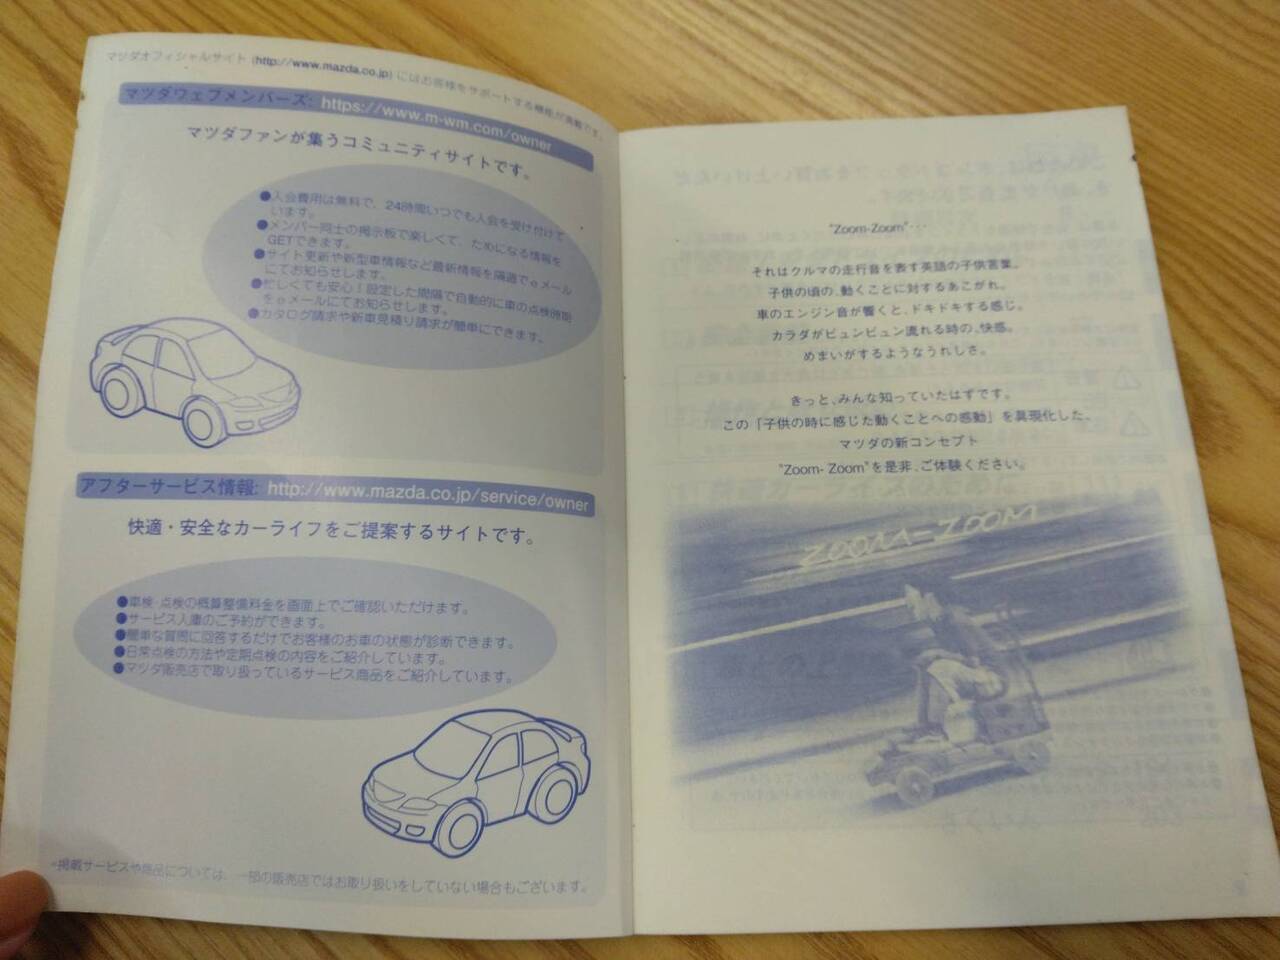 マツダオフィシャルサイト (http://www.mazda.co.jp) にはお客様をサポートする機能が満載です。
マツダウェブメンバーズ: https://www.m-wm.com/owner
マツダファンが集うコミュニティサイトです。
●入会費用は無料で、24時間いつでも入会を受け付けて
います。
●メンバー同士の掲示板で楽しくて、ためになる情報を
GETできます。
●サイト更新や新型車情報など最新情報を隔週でeメール
にてお知らせします。
●忙しくても安心！設定した間隔で自動的に車の点検時期
をeメールにてお知らせします。
●カタログ請求や新車見積り請求が簡単にできます。
アフターサービス情報: http://www.mazda.co.jp/service/owner
快適・安全なカーライフをご提案するサイトです。
●車検・点検の概算整備料金を画面上でご確認いただけます。
●サービス入庫のご予約ができます。
●簡単な質問に回答するだけでお客様のお車の状態が診断できます。
●日常点検の方法や定期点検の内容をご紹介しています。
●マツダ販売店で取り扱っているサービス商品をご紹介しています。
*掲載サービスや商品については、一部の販売店ではお取り扱いをしていない場合もございます。
"Zoom-Zoom"･･･
それはクルマの走行音を表す英語の子供言葉。
子供の頃の、動くことに対するあこがれ。
車のエンジン音が響くと、ドキドキする感じ。
カラダがビュンビュン流れる時の、快感。
めまいがするようなうれしさ。
きっと、みんな知っていたはずです。
この「子供の時に感じた動くことへの感動」を具現化した、
マツダの新コンセプト
"Zoom- Zoom"を是非、ご体験ください。
ZOOM-ZOOM